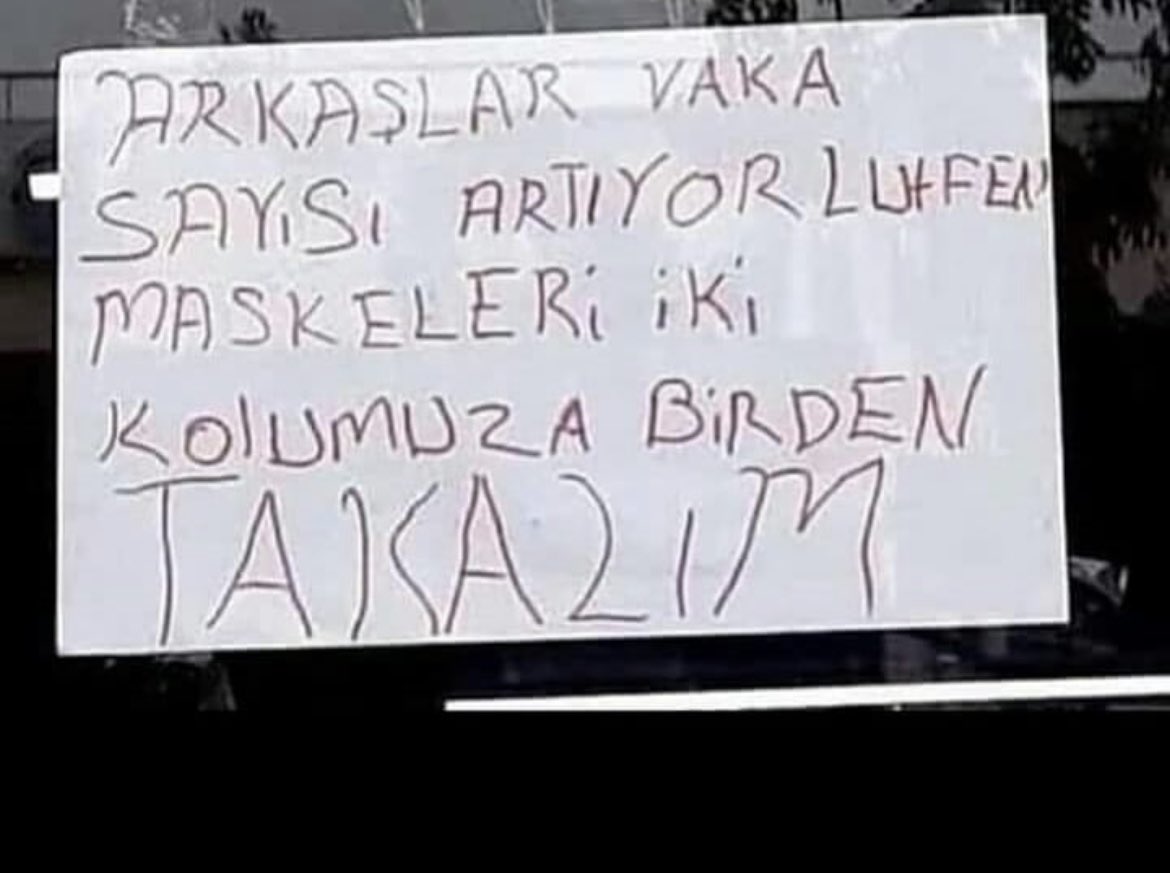 ARKAŞLAR VAKA
SAYISI ARTIYOR LUTFEN
MASKELERİ İKİ
KOlUMUZA BİRDEN
TAKALIM